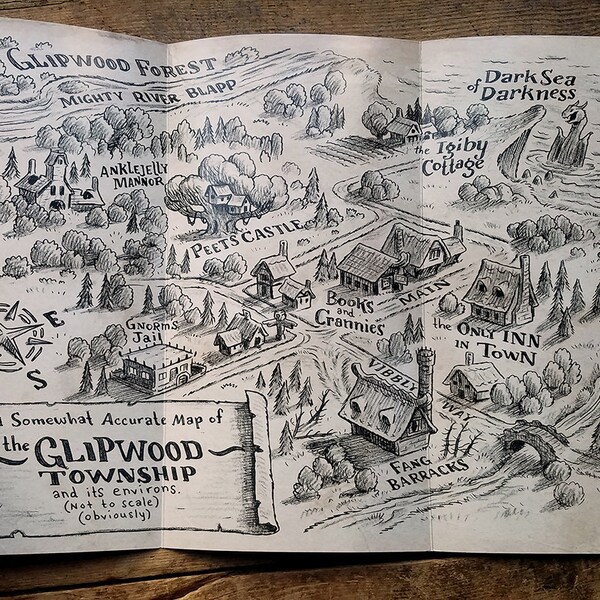 GLIPWOOD FOREST
MIGHTY RIVER BLAPP
DARK SEA
of DARKNESS
the IGIBY
COTTAGE
ANKLEJELLY
MANNOR
PEETS CASTLE
BOOKS
and
CRANNIES
MAIN
the ONLY INN
IN TOWN
GNORMS
JAIL
VIBBLY
WAY
FANG
BARRACKS
E
S
A SOMEWHAT ACCURATE MAP OF
the GLIPWOOD
TOWNSHIP
and its environs.
(NOT to SCALE)
(obviously)